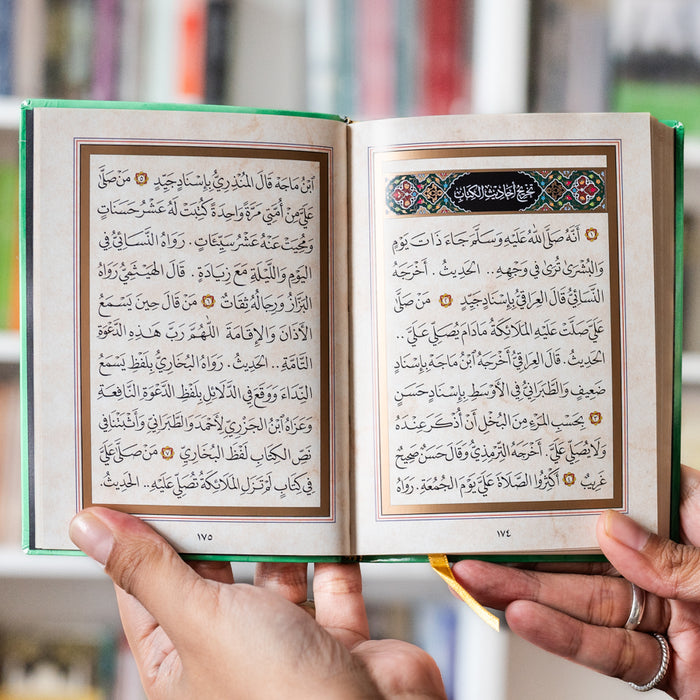 تخريج أحاديث الكتاب
١ أَنَّهُ صَلَّى اللهُ عَلَيْهِ وَسَلَّمَ جَاءَ ذَاتَ يَوْمٍ
وَالْبُشْرَى تُرَى فِي وَجْهِهِ .. الْحَدِيثُ . أَخْرَجَهُ
النَّسَائِيُّ قَالَ الْعِرَاقِيُّ بِإِسْنَادٍ جَيِّدٍ مَنْ صَلَّى
عَلَيَّ صَلَّتْ عَلَيْهِ الْمَلَائِكَةُ مَادَامَ يُصَلِّي عَلَيَّ ..
الْحَدِيثُ. قَالَ الْعِرَاقِيُّ أَخْرَجَهُ ابْنُ مَاجَةَ بِإِسْنَادٍ
ضَعِيفٍ وَالطَّبَرَانِيُّ فِي الْأَوْسَطِ بِإِسْنَادٍ حَسَنٍ
٣ بِحَسْبِ الْمَرْءِ مِنَ الْبُخْلِ أَنْ أُذْكَرَ عِنْدَهُ
وَلَا يُصَلِّيَ عَلَيَّ . أَخْرَجَهُ التِّرْمِذِيُّ وَقَالَ حَسَنٌ صَحِيحٌ
غَرِيبٌ ٤ أَكْثِرُوا الصَّلَاةَ عَلَيَّ يَوْمَ الْجُمُعَةِ. رَوَاهُ
١٧٤
ابْنُ مَاجَة قَالَ الْمُنْذِرِيُّ بِإِسْنَادٍ جَيِّدٍ ٥ مَنْ صَلَّى
عَلَيَّ مِنْ أُمَّتِي مَرَّةً وَاحِدَةً كُتِبَتْ لَهُ عَشْرُ حَسَنَاتٍ
وَمُحِيَتْ عَنْهُ عَشْرُ سَيِّئَاتٍ . رَوَاهُ النَّسَائِيُّ فِي
الْيَوْمِ وَاللَّيْلَةِ مَعَ زِيَادَةٍ . قَالَ الْهَيْثَمِيُّ رَوَاهُ
الْبَزَّارُ وَرِجَالُهُ ثِقَاتٌ ٦ مَنْ قَالَ حِينَ يَسْمَعُ
الْأَذَانَ وَالْإِقَامَةَ اللَّهُمَّ رَبَّ هَذِهِ الدَّعْوَةِ
التَّامَّةِ .. الْحَدِيثُ . رَوَاهُ الْبُخَارِيُّ بِلَفْظِ يَسْمَعُ
النِّدَاءَ وَوَقَعَ فِي الدَّلَائِلِ بِلَفْظِ الدَّعْوَةِ النَّافِعَةِ
وَعَزَاهُ ابْنُ الْجَزَرِيِّ لِأَحْمَدَ وَالطَّبَرَانِيِّ وَأَثْبَتْنَا فِي
نَصِّ الْكِتَابِ لَفْظَ الْبُخَارِيِّ ٧ مَنْ صَلَّى عَلَيَّ
فِي كِتَابٍ لَمْ تَزَلِ الْمَلَائِكَةُ تُصَلِّي عَلَيْهِ .. الْحَدِيثُ.
١٧٥